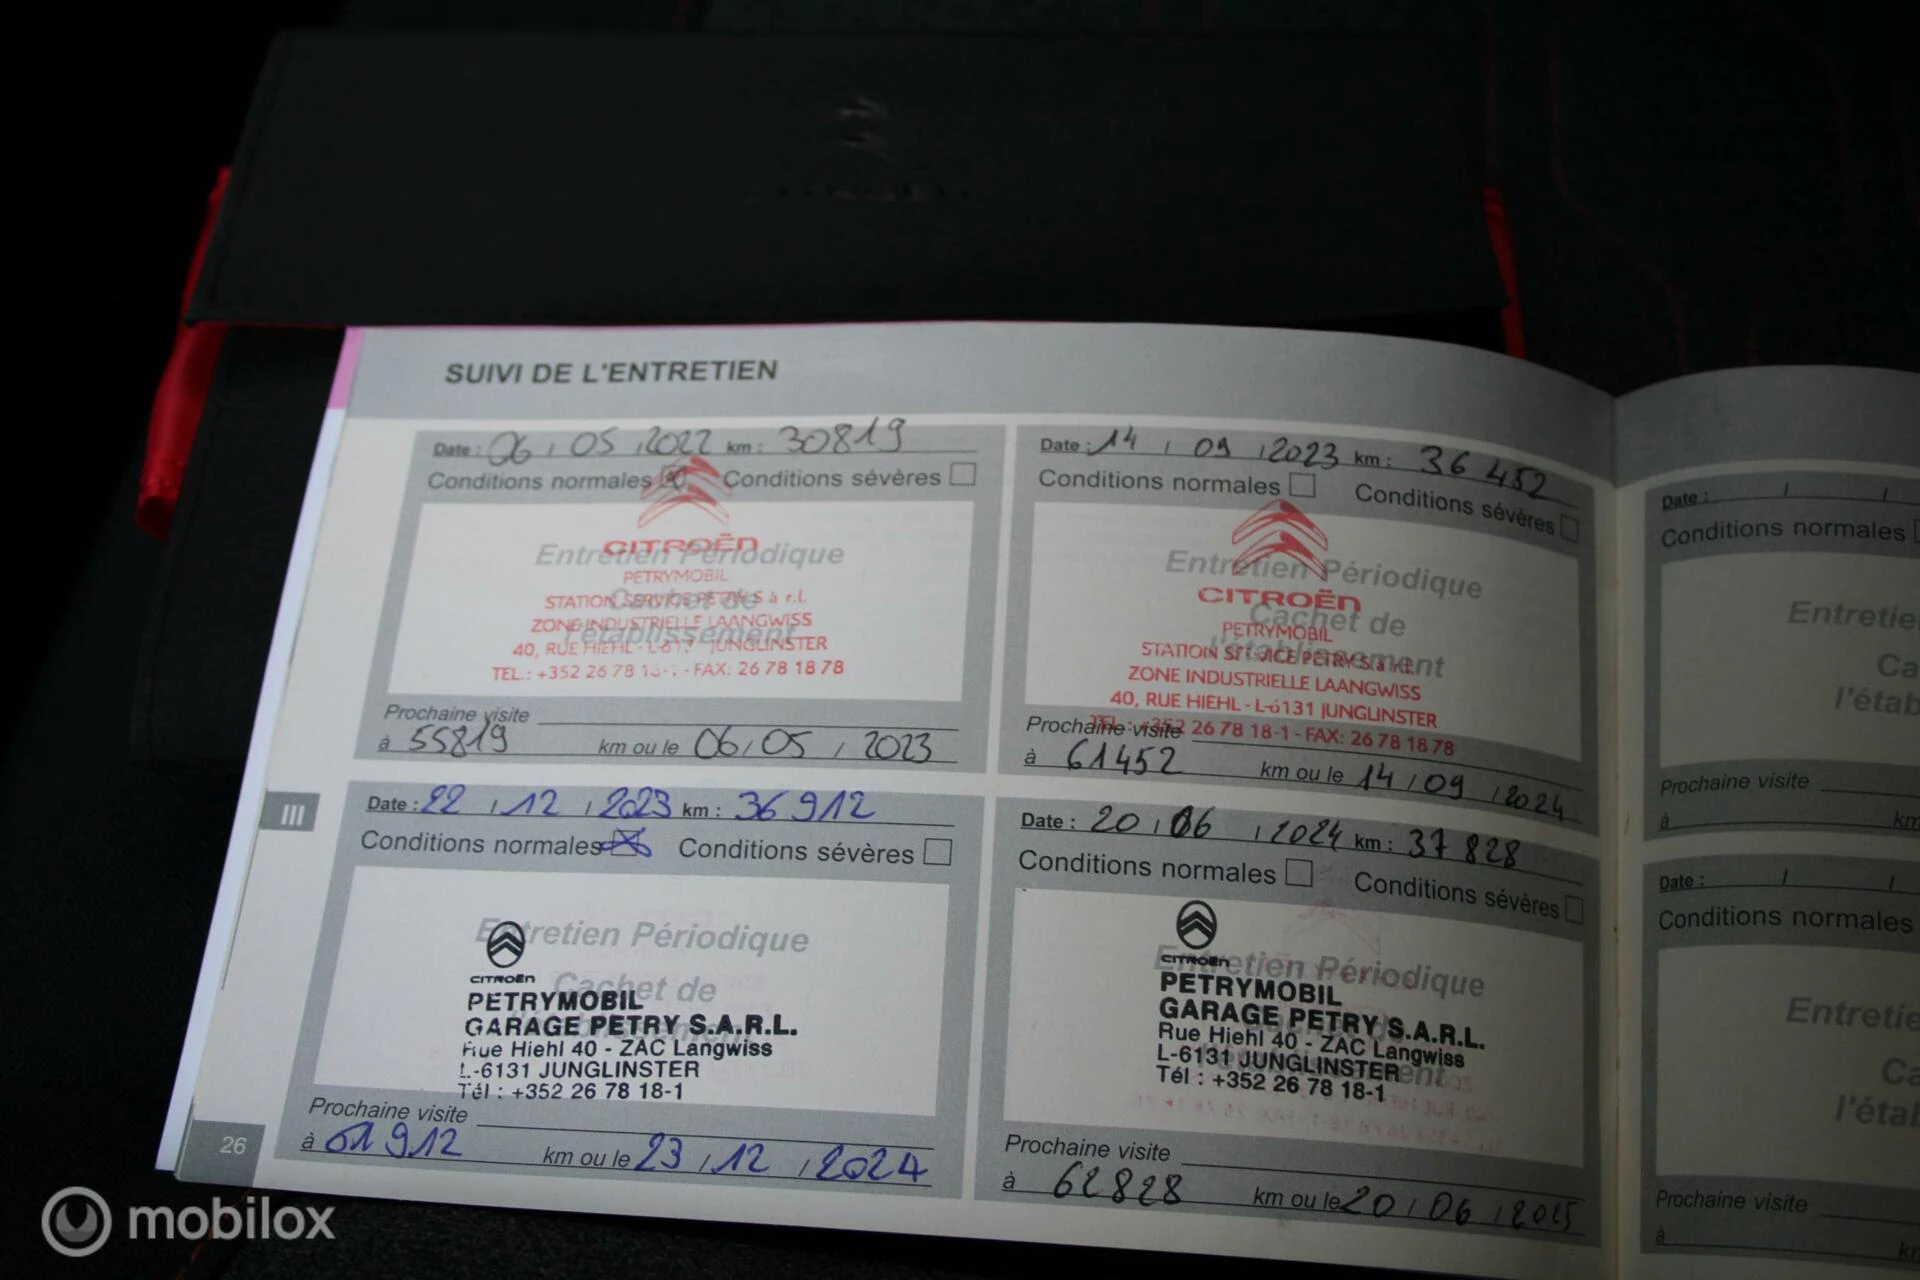 SUIVI DE L'ENTRETIEN
Date : 06 / 05 / 2022 km : 30819
Conditions normales Conditions sévères
Entretien Périodique
Cachet de
l'établissement
CITROËN
PETRYMOBIL
STATION SERVICE PETRY S.à r.l.
ZONE INDUSTRIELLE LAANGWISS
40, RUE HIEHL - JUNGLINSTER
TEL.: +352 26 78 - FAX: 26 78 18 78
Prochaine visite
à 55819 km ou le 06 / 05 / 2023
Date : 14 / 09 / 2023 km : 36 452
Conditions normales Conditions sévères
Entretien Périodique
Cachet de
l'établissement
CITROËN
PETRYMOBIL
STATION SERVICE PETRY S.à r.l.
ZONE INDUSTRIELLE LAANGWISS
40, RUE HIEHL - L-6131 JUNGLINSTER
TEL.: +352 26 78 18-1 - FAX: 26 78 18 78
Prochaine visite
à 61452 km ou le 14 / 09 / 2024
III
Date : 22 / 12 / 2023 km : 36912
Conditions normales Conditions sévères
Entretien Périodique
Cachet de
CITROËN
PETRYMOBIL
GARAGE PETRY S.A.R.L.
Rue Hiehl 40 - ZAC Langwiss
L-6131 JUNGLINSTER
Tél : +352 26 78 18-1
Prochaine visite
à 61912 km ou le 23 / 12 / 2024
Date : 20 / 06 / 2024 km : 37828
Conditions normales Conditions sévères
Entretien Périodique
CITROËN
PETRYMOBIL
GARAGE PETRY S.A.R.L.
Rue Hiehl 40 - ZAC Langwiss
L-6131 JUNGLINSTER
Tél : +352 26 78 18-1
Prochaine visite
à 62828 km ou le 20 / 06 / 2025
26
Date : / /
Conditions normales
Entretie
Ca
l'étab
Prochaine visite
à km
Date : / /
Conditions normales
Entretie
Ca
l'étab
Prochaine visite
à km
mobilox